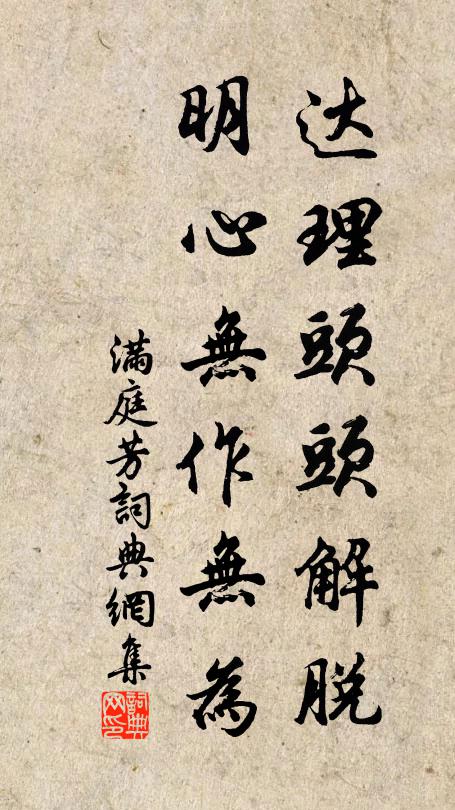 达理頭頭解脱
明心無作無為
滿庭芳詞典網集
詞典
网印